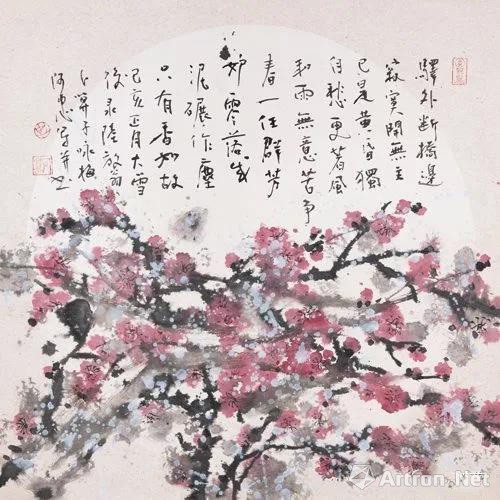 驛外斷橋邊
寂寞開無主
已是黃昏獨
自愁更著風
和雨無意苦爭
春一任群芳
妒零落成
泥碾作塵
只有香如故
己亥正月大雪
後录陸放翁
卜算子咏梅
Artron.Net